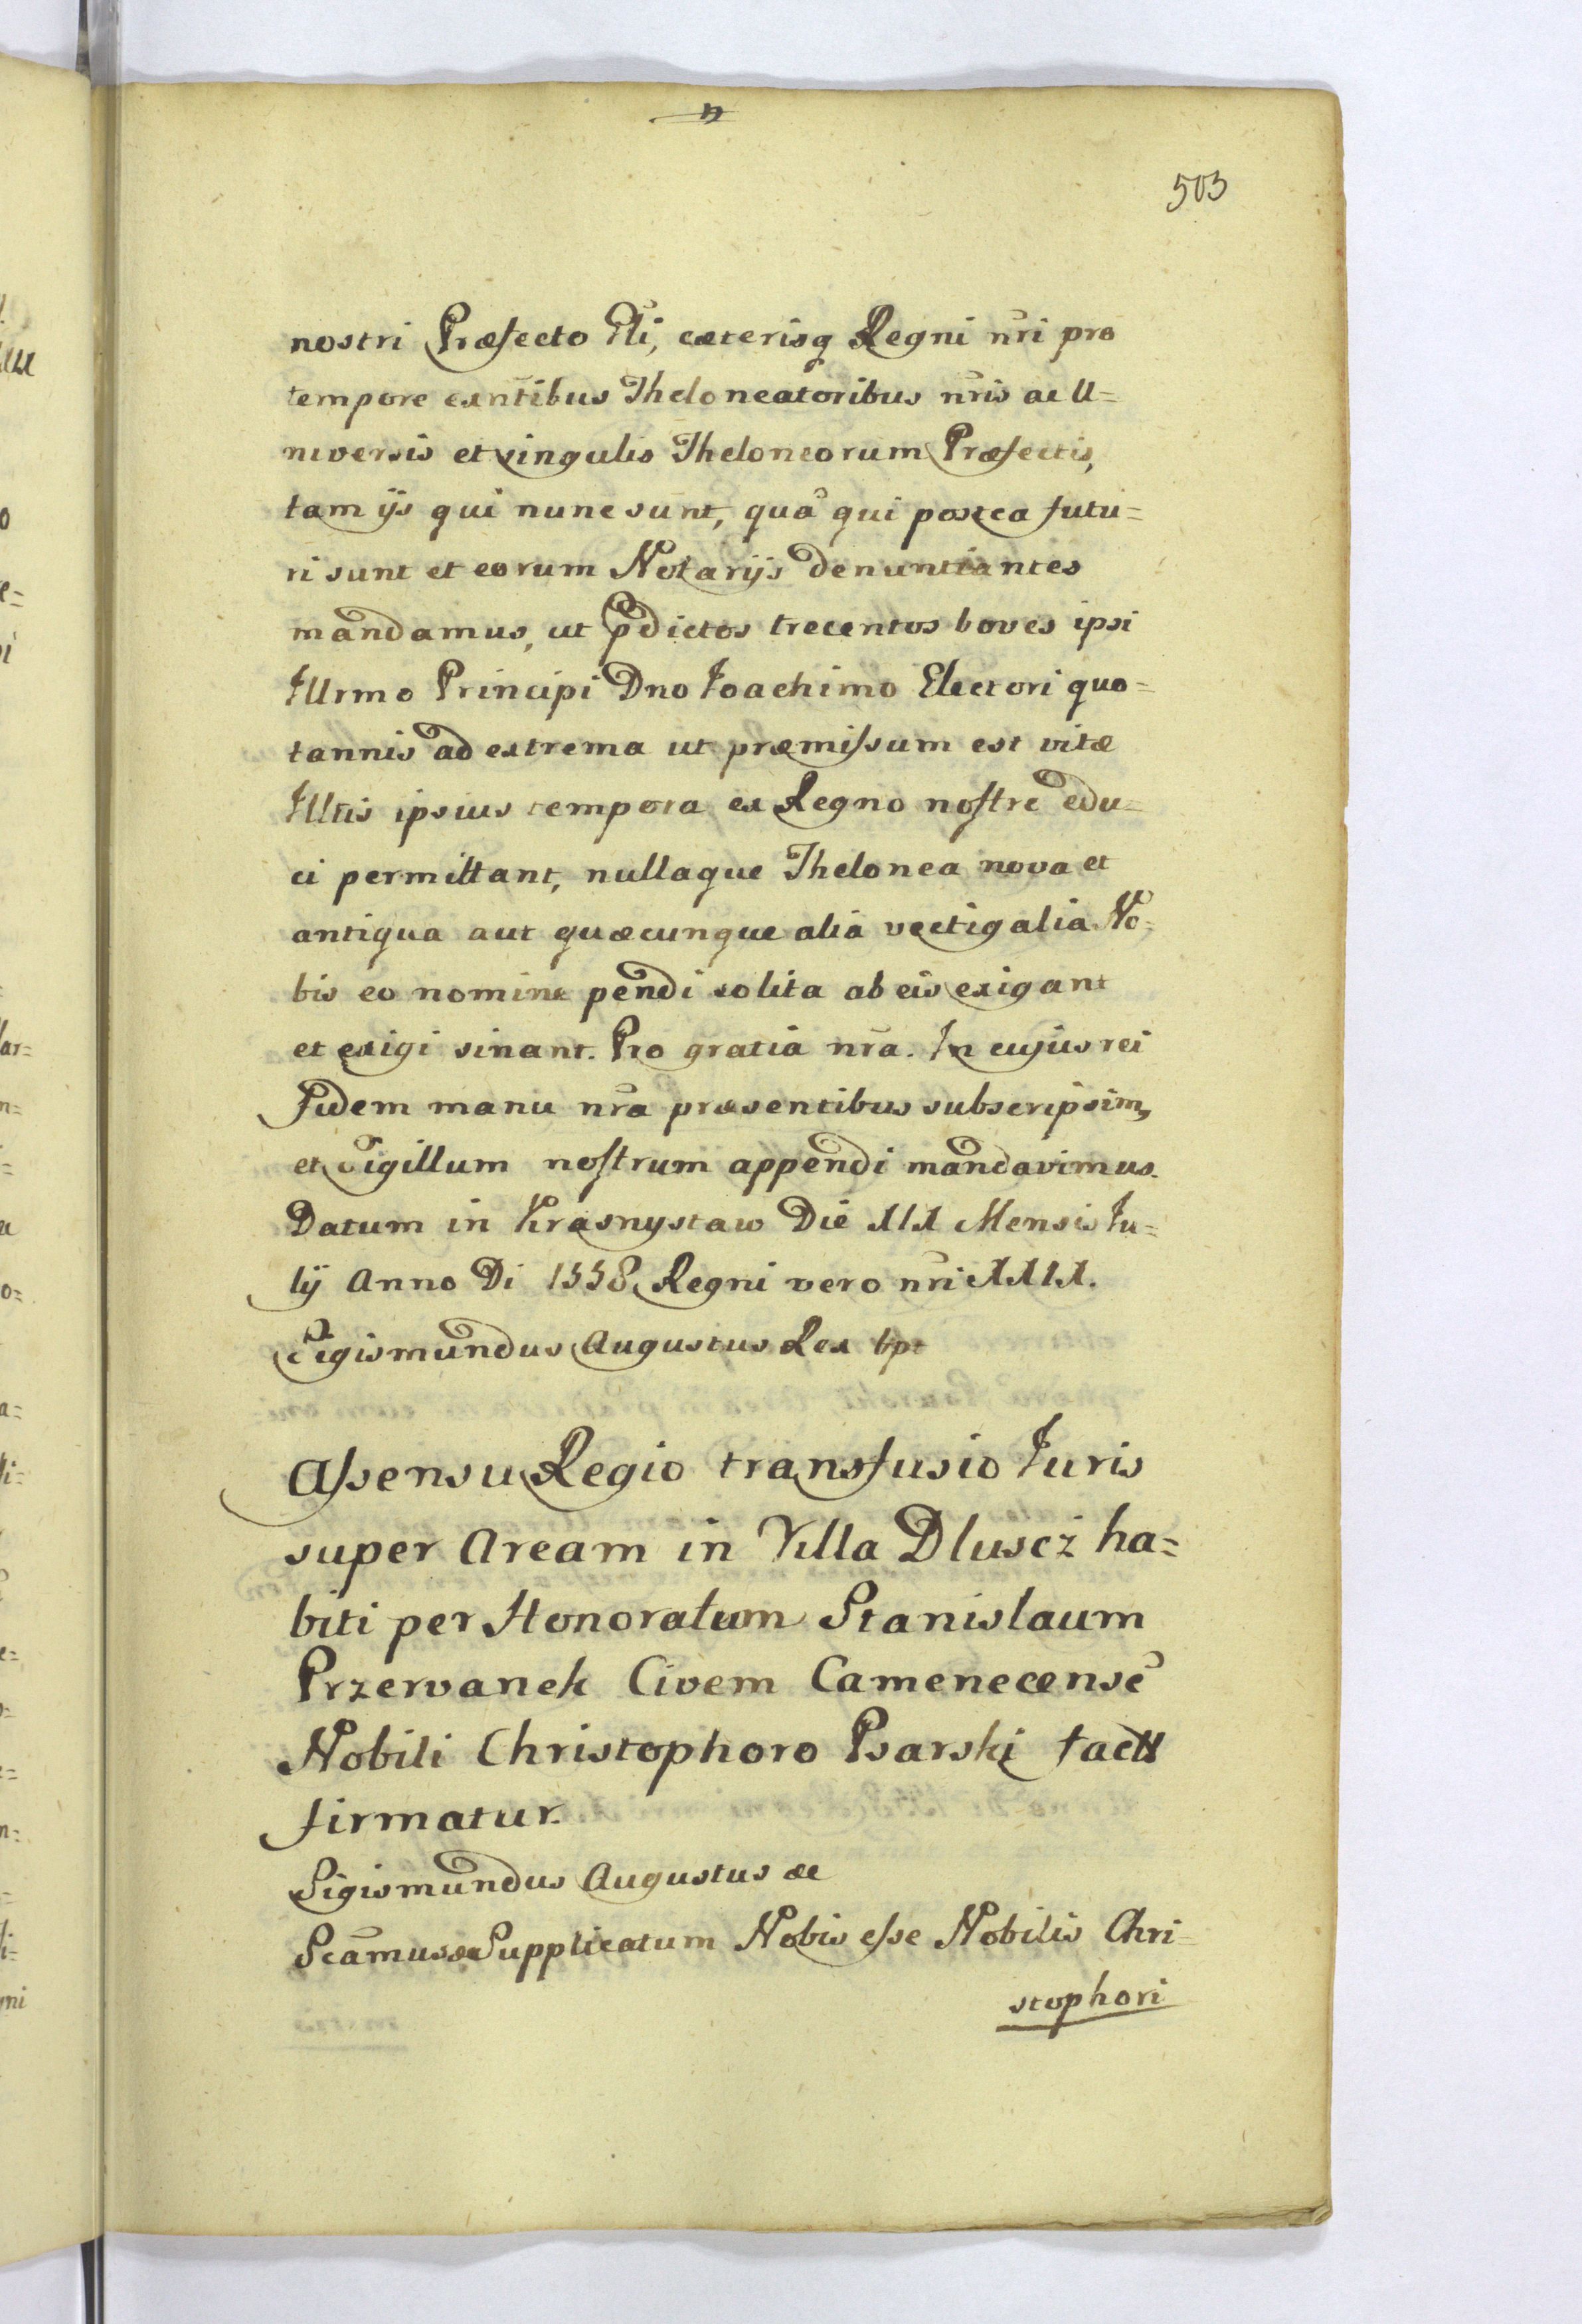 503
nostri Præfecto Gli, cæterisq Regni nri pro
tempore exntibus Theloneatoribus nris ac U=
niversis et singulis Theloneorum Præfectis,
tam ijs qui nunc sunt, quā qui postea futu=
ri sunt et eorum Notarijs denuntiantes
mandamus, ut pdictos trecentos boves ipsi
Illrmo Principi Dno Joachimo Electori quo=
tannis ad extrema ut præmissum est vitæ
Illtis ipsius tempora ex Regno nostro edu=
ci permittant, nullaque Thelonea nova et
antiqua aut quæcunque alia vectigalia No=
bis eo nomine pendi solita ab eis exigant
et exigi sinant. Pro gratia nra. In cujus rei
Fidem manu nra præsentibus subscripsim,
et Sigillum nostrum appendi mandavimus.
Datum in Krasnystaw Die XIX Mensis Ju=
lij Anno Di 1558 Regni vero nri XXIX.
Sigismundus Augustus Rex
Assensu Regio transfusio Juris
super Aream in Villa Dluscz ha=
biti per Honoratum Stanislaum
Przerwanek Civem Camenecensē
Nobili Christophoro Psarski
firmatur.
Sigismundus Augustus &c
Scamus &a Supplicatum Nobis esse Nobilis Chri=
stophori